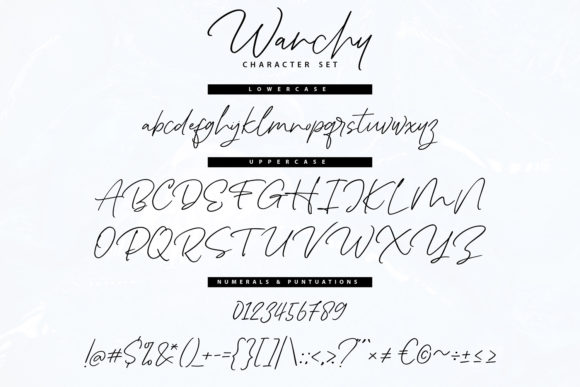 Wanchy
CHARACTER SET
LOWERCASE
abcdefghyklmnopqrstuvwxyz
UPPERCASE
ABCDEFGHIJKLMN
OPQRSTUVWXYZ
NUMERALS & PUNTUATIONS
0123456789
!@#$%&*()_+-={}[]|\:;<,>.?"'×≠€©~÷±≤≥